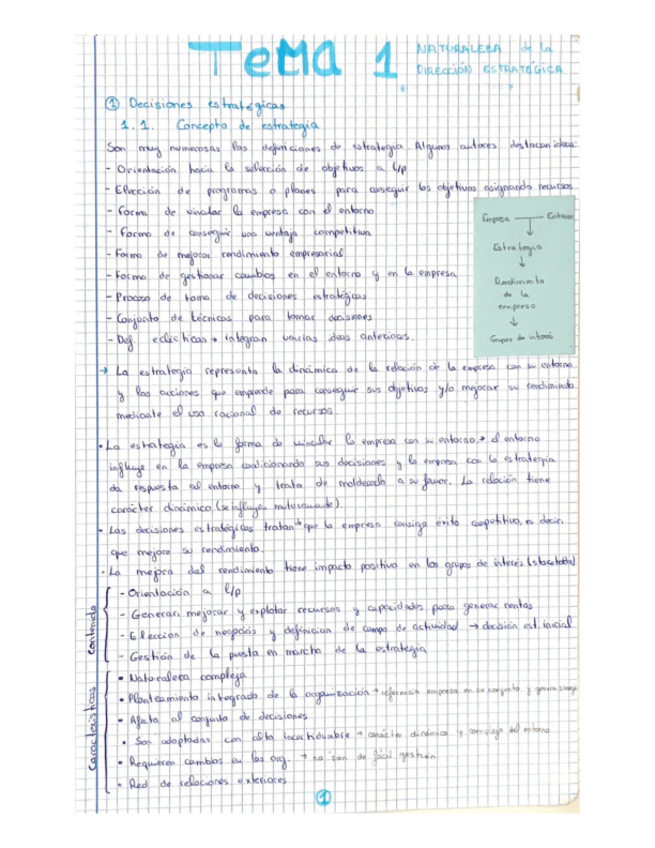 TeMA 1 NATURALEZA de la
DIRECCIÓN ESTRATÉGICA
① Decisiones estratégicas
1.1. Concepto de estrategia
Son muy numerosas las definiciones de estrategia. Algunos autores destacan ideas:
- Orientación hacia la selección de objetivos a L/p
- Elección de programas o planes para conseguir los objetivos asignando recursos
- Forma de vincular la empresa con el entorno
- Forma de conseguir una ventaja competitiva
- Forma de mejorar rendimiento empresarial
- Forma de gestionar cambios en el entorno y en la empresa
- Proceso de toma de decisiones estratégicas
- Conjunto de técnicas para tomar decisiones
- Def. eclécticas → integran varias ideas anteriores.
Empresa — Entorno
↓
Estrategia
↓
Rendimiento
de la
empresa
↓
Grupos de interés
→ La estrategia representa la dinámica de la relación de la empresa con su entorno
y las acciones que emprende para conseguir sus objetivos y/o mejorar su rendimiento
mediante el uso racional de recursos.
• La estrategia es la forma de vincular la empresa con su entorno → el entorno
influye en la empresa condicionando sus decisiones y la empresa con la estrategia
da respuesta al entorno y trata de moldearlo a su favor. La relación tiene
carácter dinámico (se influyen mutuamente).
• Las decisiones estratégicas tratan de que la empresa consiga éxito competitivo, es decir,
que mejore su rendimiento.
• La mejora del rendimiento tiene impacto positivo en los grupos de interés
Contenido
- Orientación a L/p
- Generar, mejorar y explotar recursos y capacidades para generar rentas
- Elección de negocios y definición de campo de actividad → decisión est. inicial
- Gestión de la puesta en marcha de la estrategia
Características
• Naturaleza compleja
• Planteamiento integrado de la organización → referencia empresa en su conjunto y
• Afecta al conjunto de decisiones
• Son adoptadas con alta incertidumbre → carácter dinámico y complejo del entorno
• Requieren cambios en las org. → no son de fácil gestión
• Red de relaciones exteriores
①